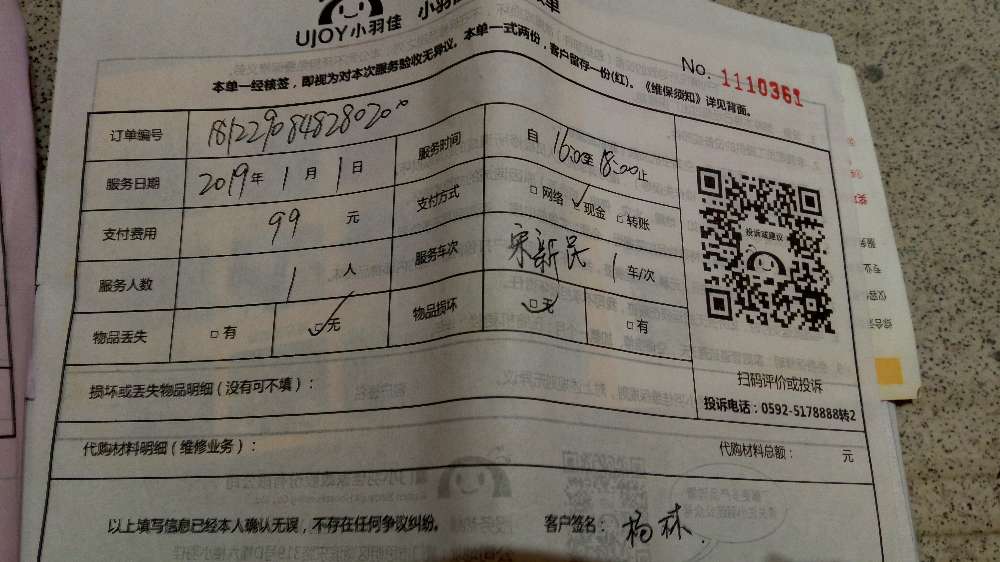 UJOY小羽佳
本单一经核签，即视为对本次服务验收无异议。本单一式两份，客户留存一份(红)。《维保须知》详见背面。
No. 1110361
订单编号 18122908482802000 服务时间 自 16:00至 18:00止
服务日期 2019年 1月 1日 支付方式 □网络 ☑现金 □转账
支付费用 99 元
服务人数 1 人 服务车次 宋新民 1 车/次
物品丢失 □有 ☑无 物品损坏 ☑无 □有
投诉或建议
扫码评价或投诉
投诉电话：0592-5178888转2
损坏或丢失物品明细（没有可不填）：
代购材料明细（维修业务）： 代购材料总额： 元
以上填写信息已经本人确认无误，不存在任何争议纠纷。 客户签名： 杨林